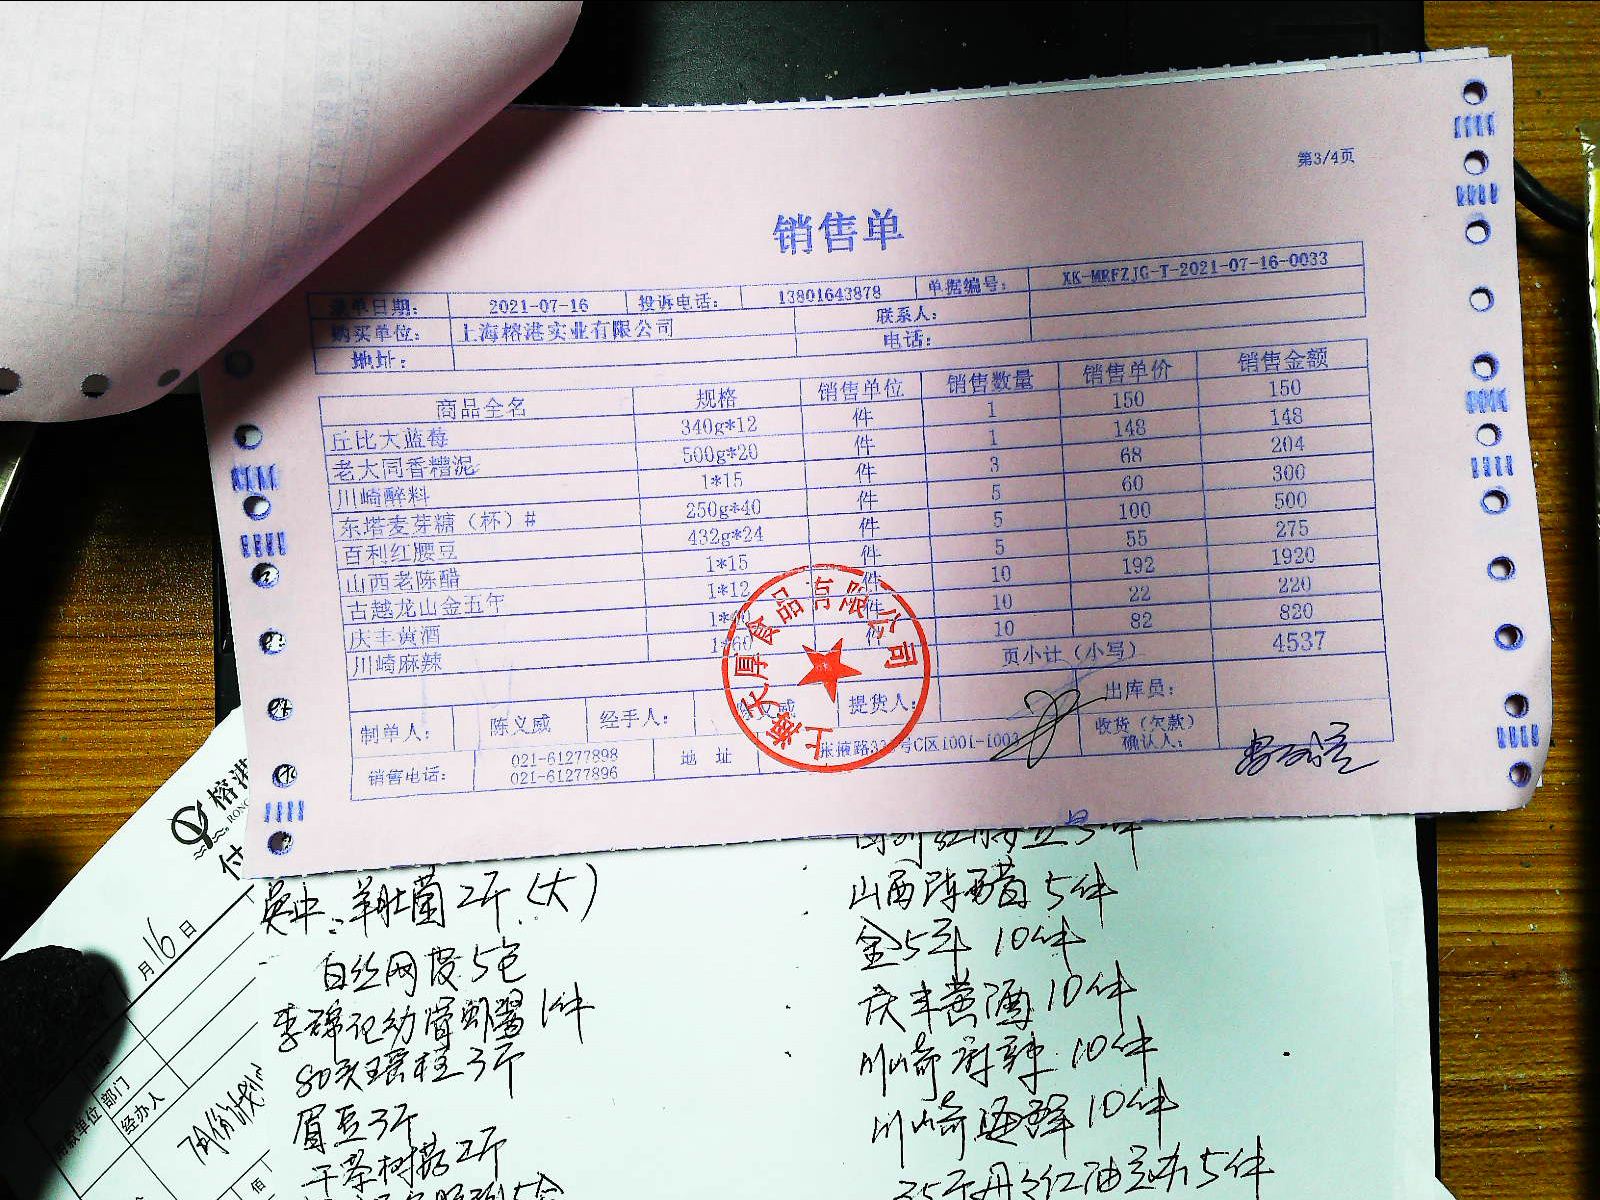 第3/4页
销售单
录单日期： 2021-07-16 投诉电话： 13801643878 单据编号： XK-MRFZJG-T-2021-07-16-0033
购买单位： 上海榕港实业有限公司 联系人：
地址： 电话：
商品全名 规格 销售单位 销售数量 销售单价 销售金额
丘比大蓝莓 340g*12 件 1 150 150
老大同香糟泥 500g*20 件 1 148 148
川崎醉料 1*15 件 3 68 204
东塔麦芽糖（杯）# 250g*40 件 5 60 300
百利红腰豆 432g*24 件 5 100 500
山西老陈醋 1*15 件 5 55 275
古越龙山金五年 1*12 件 10 192 1920
庆丰黄酒 件 10 22 220
川崎麻辣 1*60 件 10 82 820
页小计（小写） 4537
制单人： 陈义威 经手人： 陈义威 提货人： 出库员：
销售电话： 021-61277898 地 址 张掖路 号C区1001-1003 收货（欠款）
021-61277896 确认人：
上海天厚食品有限公司
榕港
付
月16日
用款单位
部门
经办人
佰
吴中：羊肚菌2斤（大）
白丝网袋5包
李锦记幼滑虾酱1件
80头瑶柱3斤
眉豆3斤
干茶树菇2斤
山西陈醋5件
金5年 10件
庆丰黄酒10件
川崎麻辣10件
川崎海鲜10件